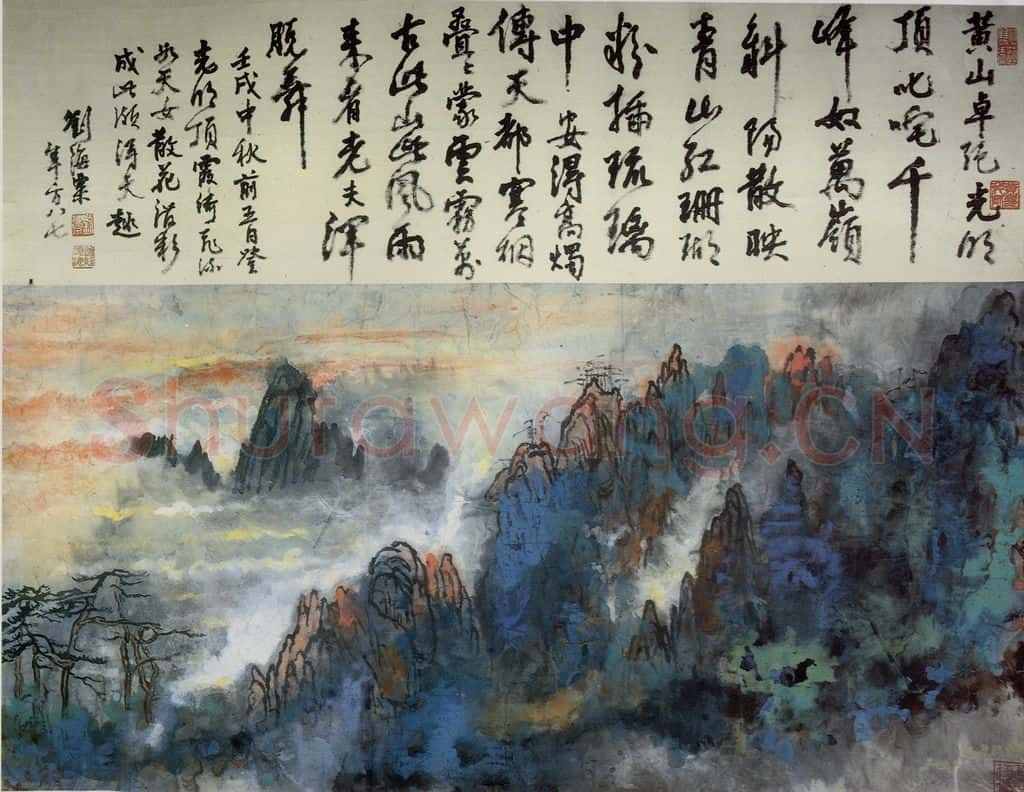 黃山卓絕光明
頂叱咤千
峰奴萬嶺
斜陽散映
青山紅珊瑚
粉播琉璃
中安得高燭
傳天都寒烟
疊〻蒙雲霧萬
古此山此風雨
來看老夫渾
脫舞
壬戌中秋前五日登
光明頂霞綺飛流
如天女散花潑彩
成此頗得天趣
劉海粟
年方八七
Shufawang.CN